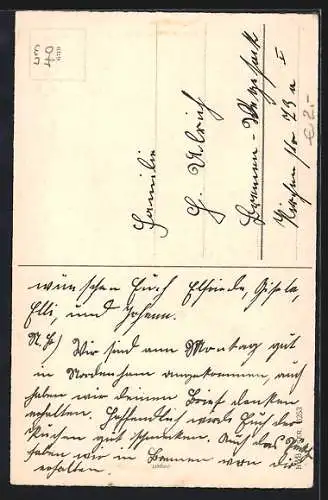 Familie
H. Ulrich
Bremen-Vegesack
Kirchenstr 73 a I
€ 2.-
wünschen Euch Elfriede, Gisela,
Elli, und Johann.
Wir sind am Montag gut
in Nordenham angekommen, auch
haben wir deinen Brief dankend
erhalten. Hoffentlich wird Euch der
Kuchen gut schmecken. Auch das
haben wir in Bremen von dir
erhalten.